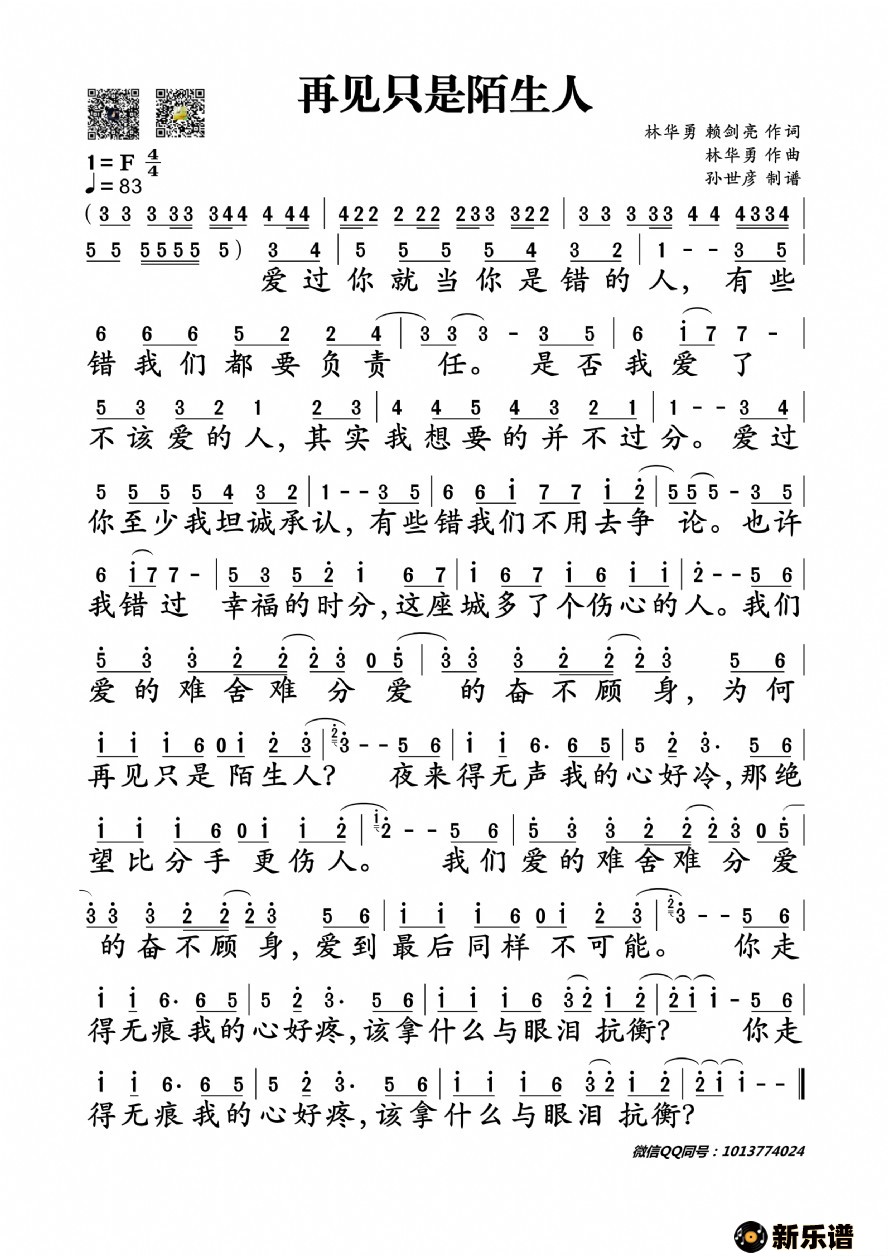 再见只是陌生人
林华勇 赖剑亮 作词
林华勇 作曲
孙世彦 制谱
1=F 4/4
♩=83
(3 3 3 33 344 4 44 | 422 2 22 233 322 | 3 3 3 33 4 4 4334 |
5 5 5555 5) 3 4 | 5 5 5 5 4 3 2 | 1 - - 3 5 |
爱过你就当你是错的人,有些
6 6 6 5 2 2 4 | 3 3 3 - 3 5 | 6 i 7 7 - |
错我们都要负责 任。 是否我爱了
5 3 3 2 1 2 3 | 4 4 5 4 3 2 1 | 1 - - 3 4 |
不该爱的人,其实我想要的并不过分。爱过
5 5 5 5 4 3 2 | 1 - - 3 5 | 6 6 i 7 7 i 2̇ | 5 5 5 - 3 5 |
你至少我坦诚承认,有些错我们不用去争 论。也许
6 i 7 7 - | 5 3 5 2̇ i 6 7 | i 6 7 i 6 i i | 2̇ - - 5 6 |
我错过 幸福的时分,这座城多了个伤心的人。我们
5̇ 3̇ 3̇ 2̇ 2̇ 2̇ 3̇ 0 5̇ | 3̇ 3̇ 3̇ 2̇ 2̇ 2̇ 3̇ 5 6 |
爱的难舍难 分 爱 的奋不顾 身,为何
i i i 6 0 i 2̇ 3̇ | 2̇ 3̇ - - 5 6 | i i 6· 6 5 | 5 2̇ 3̇· 5 6 |
再见只是陌生人? 夜来得无声我的心好冷,那绝
i i i 6 0 i i 2̇ | i 2̇ - - 5 6 | 5̇ 3̇ 3̇ 2̇ 2̇ 2̇ 3̇ 0 5̇ |
望比分手 更伤人。 我们爱的难舍难分爱
3̇ 3̇ 3̇ 2̇ 2̇ 2̇ 3̇ 5 6 | i i i 6 0 i 2̇ 3̇ | 2̇ 3̇ - - 5 6 |
的奋不顾身,爱到最后同样不可能。 你走
i i 6· 6 5 | 5 2̇ 3̇· 5 6 | i i i 6 3̇ 2̇ i 2̇ | 2̇ i i - 5 6 |
得无痕我的心好疼,该拿什么与眼泪抗衡? 你走
i i 6· 6 5 | 5 2̇ 3̇· 5 6 | i i i 6 3̇ 2̇ i 2̇ | 2̇ i i - - ‖
得无痕我的心好疼,该拿什么与眼泪抗衡?
微信QQ同号:1013774024
新乐谱